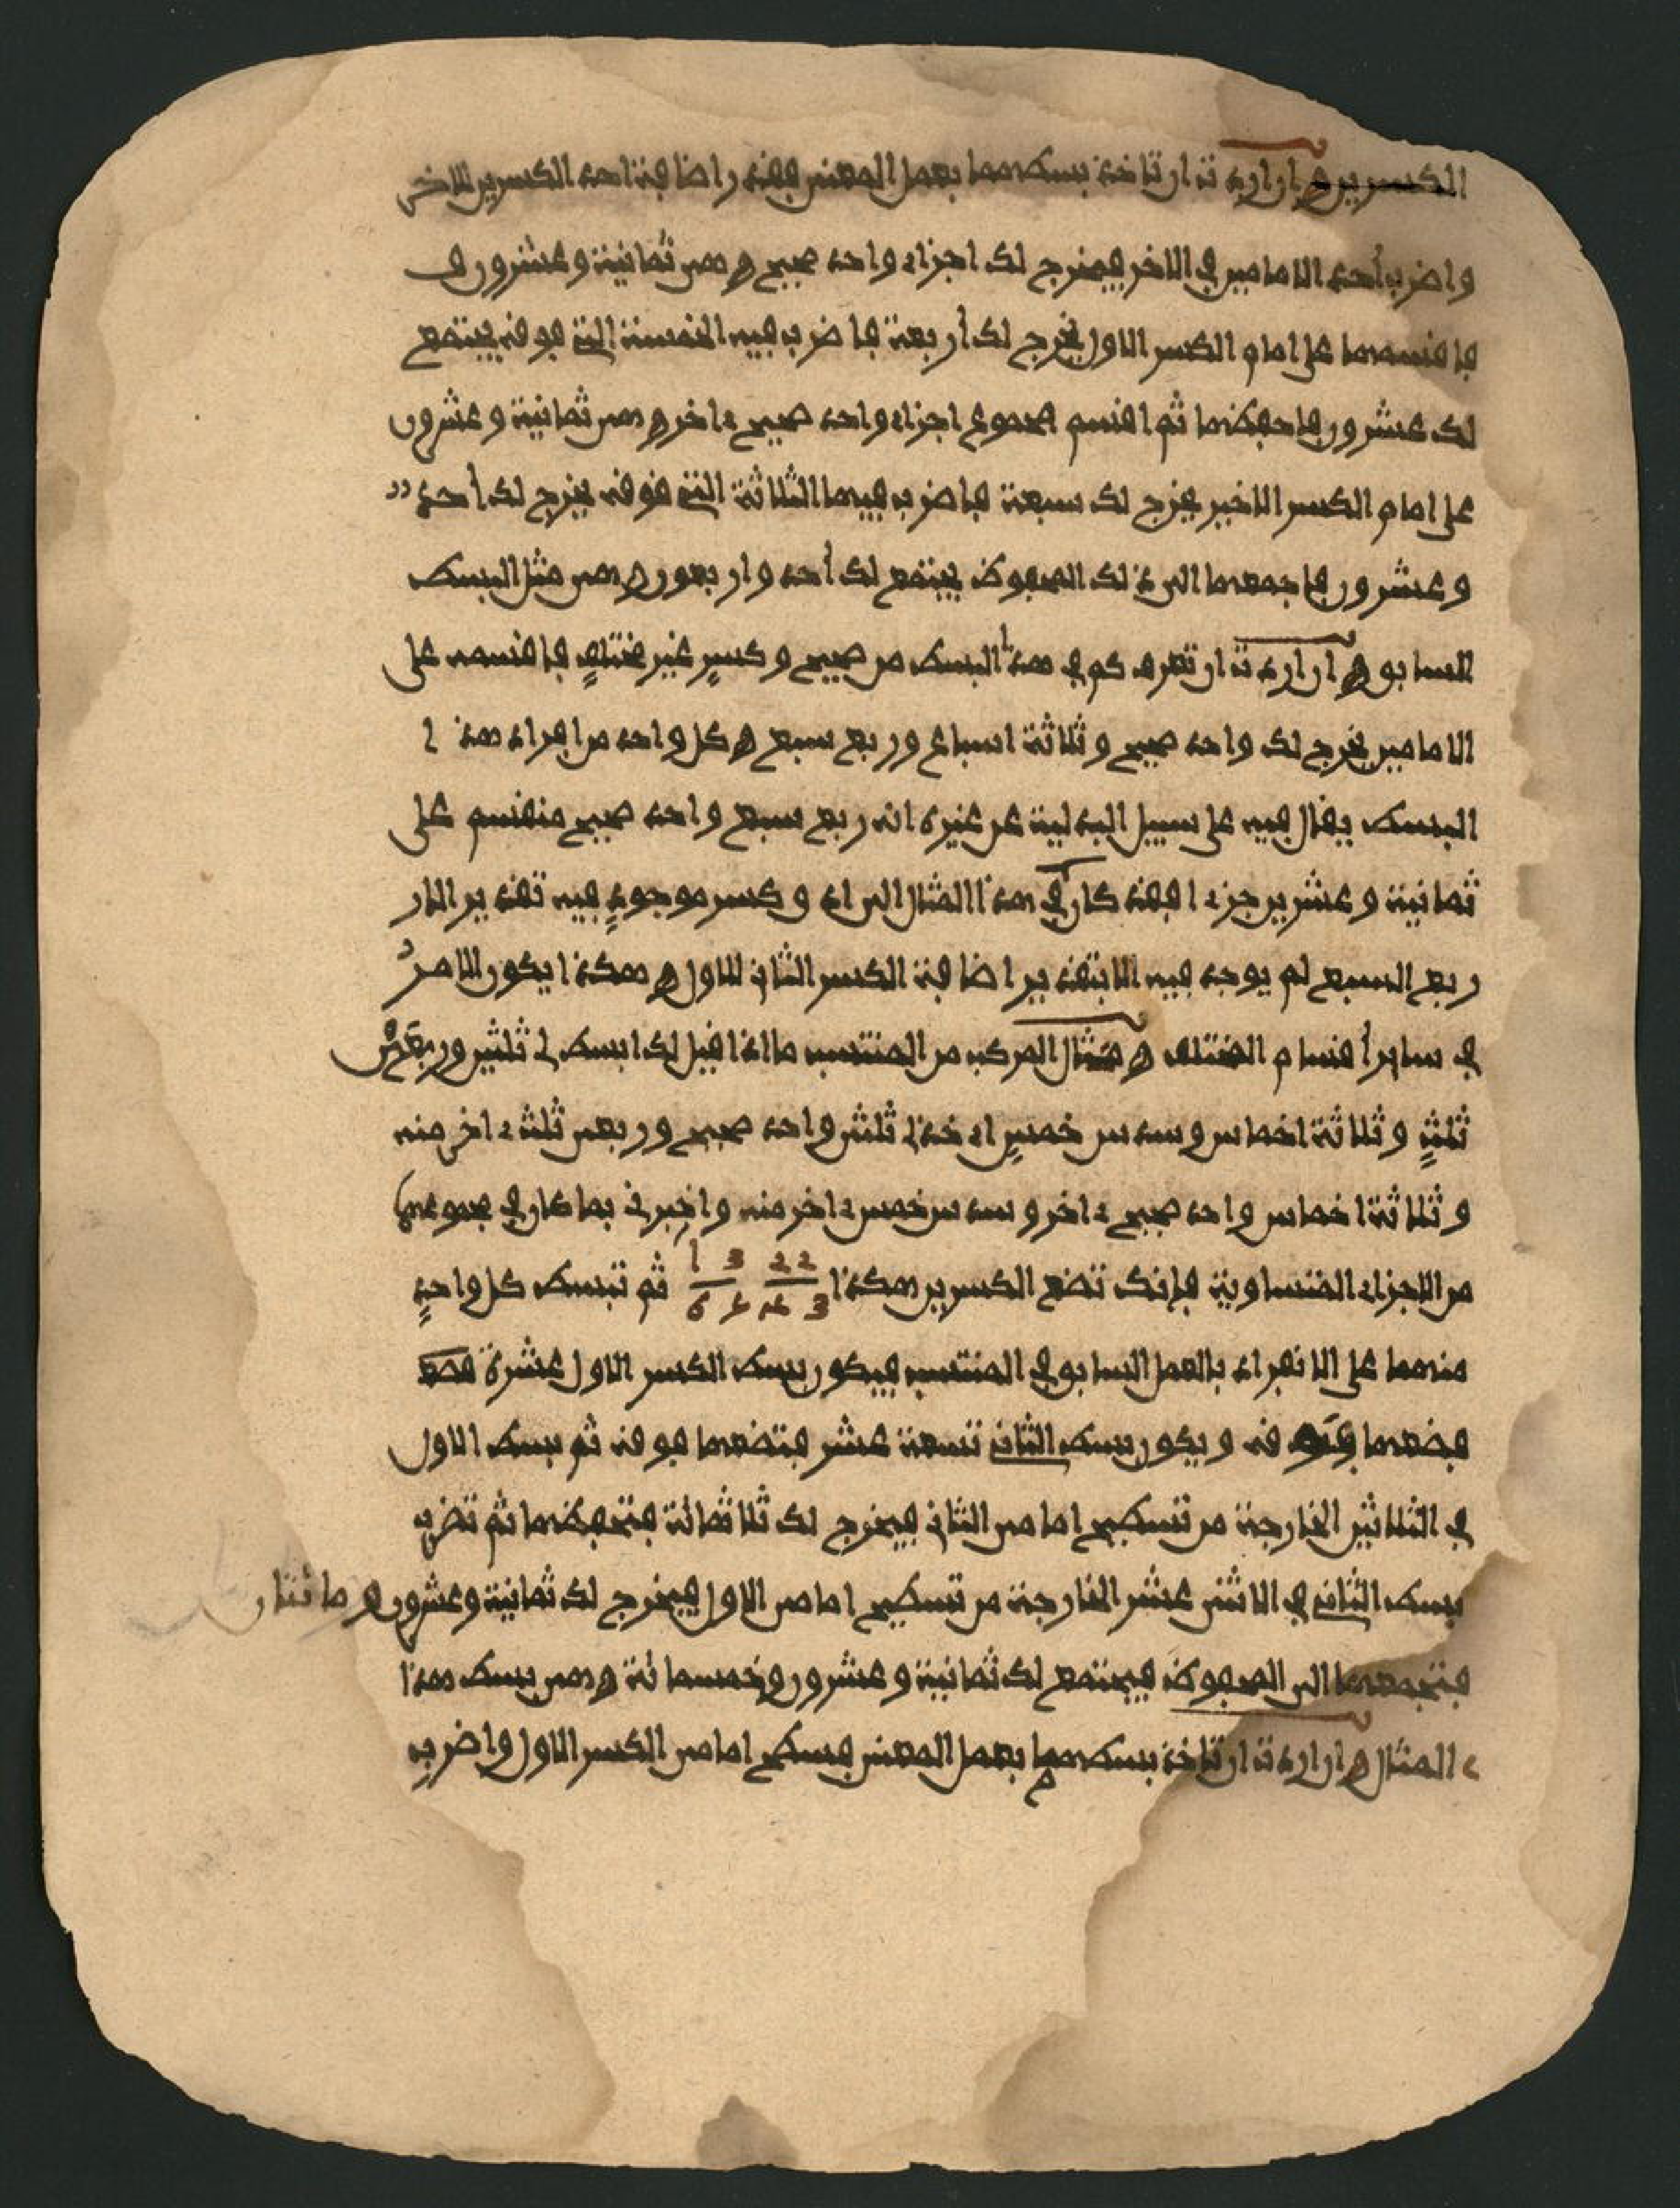 الكسرين وان اردت ان تاخذ بسطهما بعمل المعنى بقدر اضافة احد الكسرين للاخر
واضرب أحد الامامين في الاخر فيخرج لك اجزاء واحد صحيح وهي ثمانية وعشرون ف
فاقسمها على امام الكسر الاول يخرج لك أربعة فاضرب فيه الخمسة التي فوقه يجتمع
لك عشرون فاحفظها ثم اقسم مجموع اجزاء واحد صحيح ءاخر وهي ثمانية وعشرون
على امام الكسر الاخير يخرج لك سبعة فاضرب فيها الثلاثة التي فوقه يخرج لك أحد
وعشرون فاجمعها الى ذلك المحفوظ يجتمع لك أحد واربعون وهي مثل البسط
السابق وان اردت ان تعرف كم في هذا البسط من صحيح وكسرٍ غير مختلفٍ فاقسمه على
الامامين يخرج لك واحد صحيح وثلاثة اسباع وربع سبع وكل واحد من افراد هذا
البسط يقال فيه على سبيل البدلية عن غيره انه ربع سبع واحد صحيح منقسم على
ثمانية وعشرين جزءا فقد كان في هذا المثال ازداد وكسر موجودٍ فيه تقديرا لان
ربع السبع لم يوجد فيه الا بتقدير اضافة الكسر الثاني للاول وهكذا يكون الامرُ
في ساير أقسام المختلف ومثال المركب من المنتسب ما اذا قيل لك ابسط لي ثلثين وربعَيْ
ثلثٍ وثلاثة اخماس وسدس خمسٍ اي خذ لي ثلثي واحد صحيح وربعي ثلث ءاخر منه
وثلاثة اخماس واحد صحيح ءاخر وسدس خمس ءاخر منه واخبرني بما كان في مجموعها
من الاجزاء المتساوية فإنك تضع الكسرين هكذا 2 2 3 1 3 4 5 6 ثم تبسط كل واحدٍ
منهما على الانفراد بالعمل السابق في المنتسب فيكون بسط الكسر الاول عشرة
فضعها فوقه ويكون بسط الثاني تسعة عشر فتضعها فوقه ثم بسط الاول
في الثلاثين الخارجة من تسطيح امامي الثاني فيخرج لك ثلاثمائة فتحفظها ثم تضرب
بسط الثاني في الاثني عشر الخارجة من تسطيح امامي الاول فيخرج لك ثمانية وعشرون ومائتان
فتجمعها الى المحفوظ فيجتمع لك ثمانية وعشرون وخمسمائة وهي بسط هذا
المثال وان اردت ان تاخذ بسطهما بعمل المعنى فسطح امامي الكسر الاول واضرب